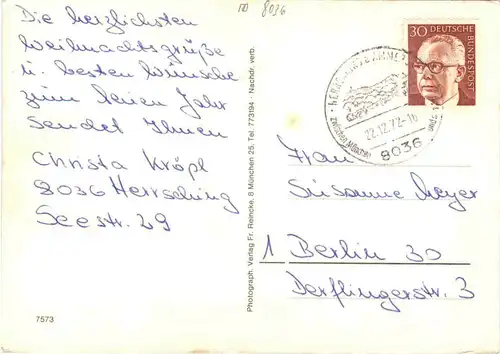 Die herzlichsten
Weihnachtsgrüße
u. besten Wünsche
zum Neuen Jahr
sendet Ihnen
Christa Kröpl
8036 Herrsching
Seestr. 29
7573
Photograph. Verlag Fr. Reincke, 8 München 25, Tel. 773194 - Nachdr. verb.
8036
30 DEUTSCHE
BUNDESPOST
22.12.72-16
8036
Frau
Susanne Meyer
1 Berlin 30
Derflingerstr. 3